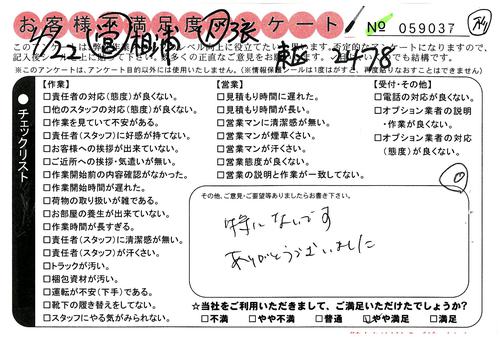 お客様不満足度アンケート
No 059037
このアンケートは、アンケート目的以外には使用いたしません。（※情報保護シールは1度はがすと、再度貼りなおすことはできません
チェックリスト
【作業】
□責任者の対応（態度）が良くない。
□他のスタッフの対応（態度）が良くない。
□作業を見ていて不安がある。
□責任者（スタッフ）に好感が持てない。
□お客様への挨拶が出来ていない。
□ご近所への挨拶・気遣いが無い。
□作業開始前の内容確認がなかった。
□作業開始時間が遅れた。
□荷物の取り扱いが雑である。
□お部屋の養生が出来ていない。
□作業時間が長すぎる。
□責任者（スタッフ）に清潔感が無い。
□責任者（スタッフ）が汗くさい。
□トラックが汚い。
□梱包資材が汚い。
□運転が不安（下手）である。
□靴下の履き替えをしてない。
□スタッフにやる気がみられない。
【営業】
□見積もり時間に遅れた。
□見積もり時間が長い。
□営業マンに清潔感が無い。
□営業マンが煙草くさい。
□営業マンが汗くさい。
□営業態度が良くない。
□営業の説明と作業が一致してない。
【受付・その他】
□電話の対応が良くない。
□オプション業者の説明
・作業が良くない。
□オプション業者の対応
（態度）が良くない。
その他、ご意見・ご要望等ありましたらお書き下さい。
特にないです
ありがとうございました
☆当社をご利用いただきまして、ご満足いただけたでしょうか？
□不満 □やや不満 □普通 □やや満足 □満足